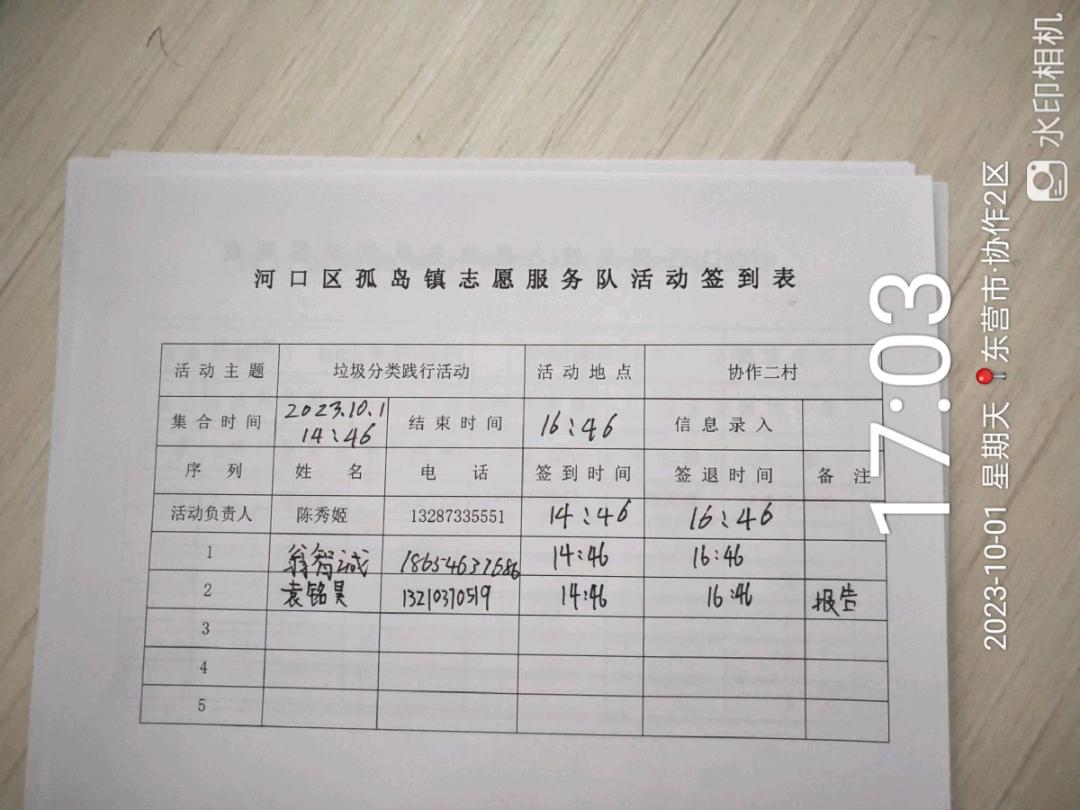 河口区孤岛镇志愿服务队活动签到表
活动主题 垃圾分类践行活动 活动地点 协作二村
集合时间 2023.10.1 14:46 结束时间 16:46 信息录入
序列 姓名 电话 签到时间 签退时间 备注
活动负责人 陈秀姬 13287335551 14:46 16:46
1 翁智诚 18654637686 14:46 16:46
2 袁铭昊 13210370519 14:46 16:46 报告
3
4
5
17:03
2023-10-01 星期天 东营市·协作2区
水印相机